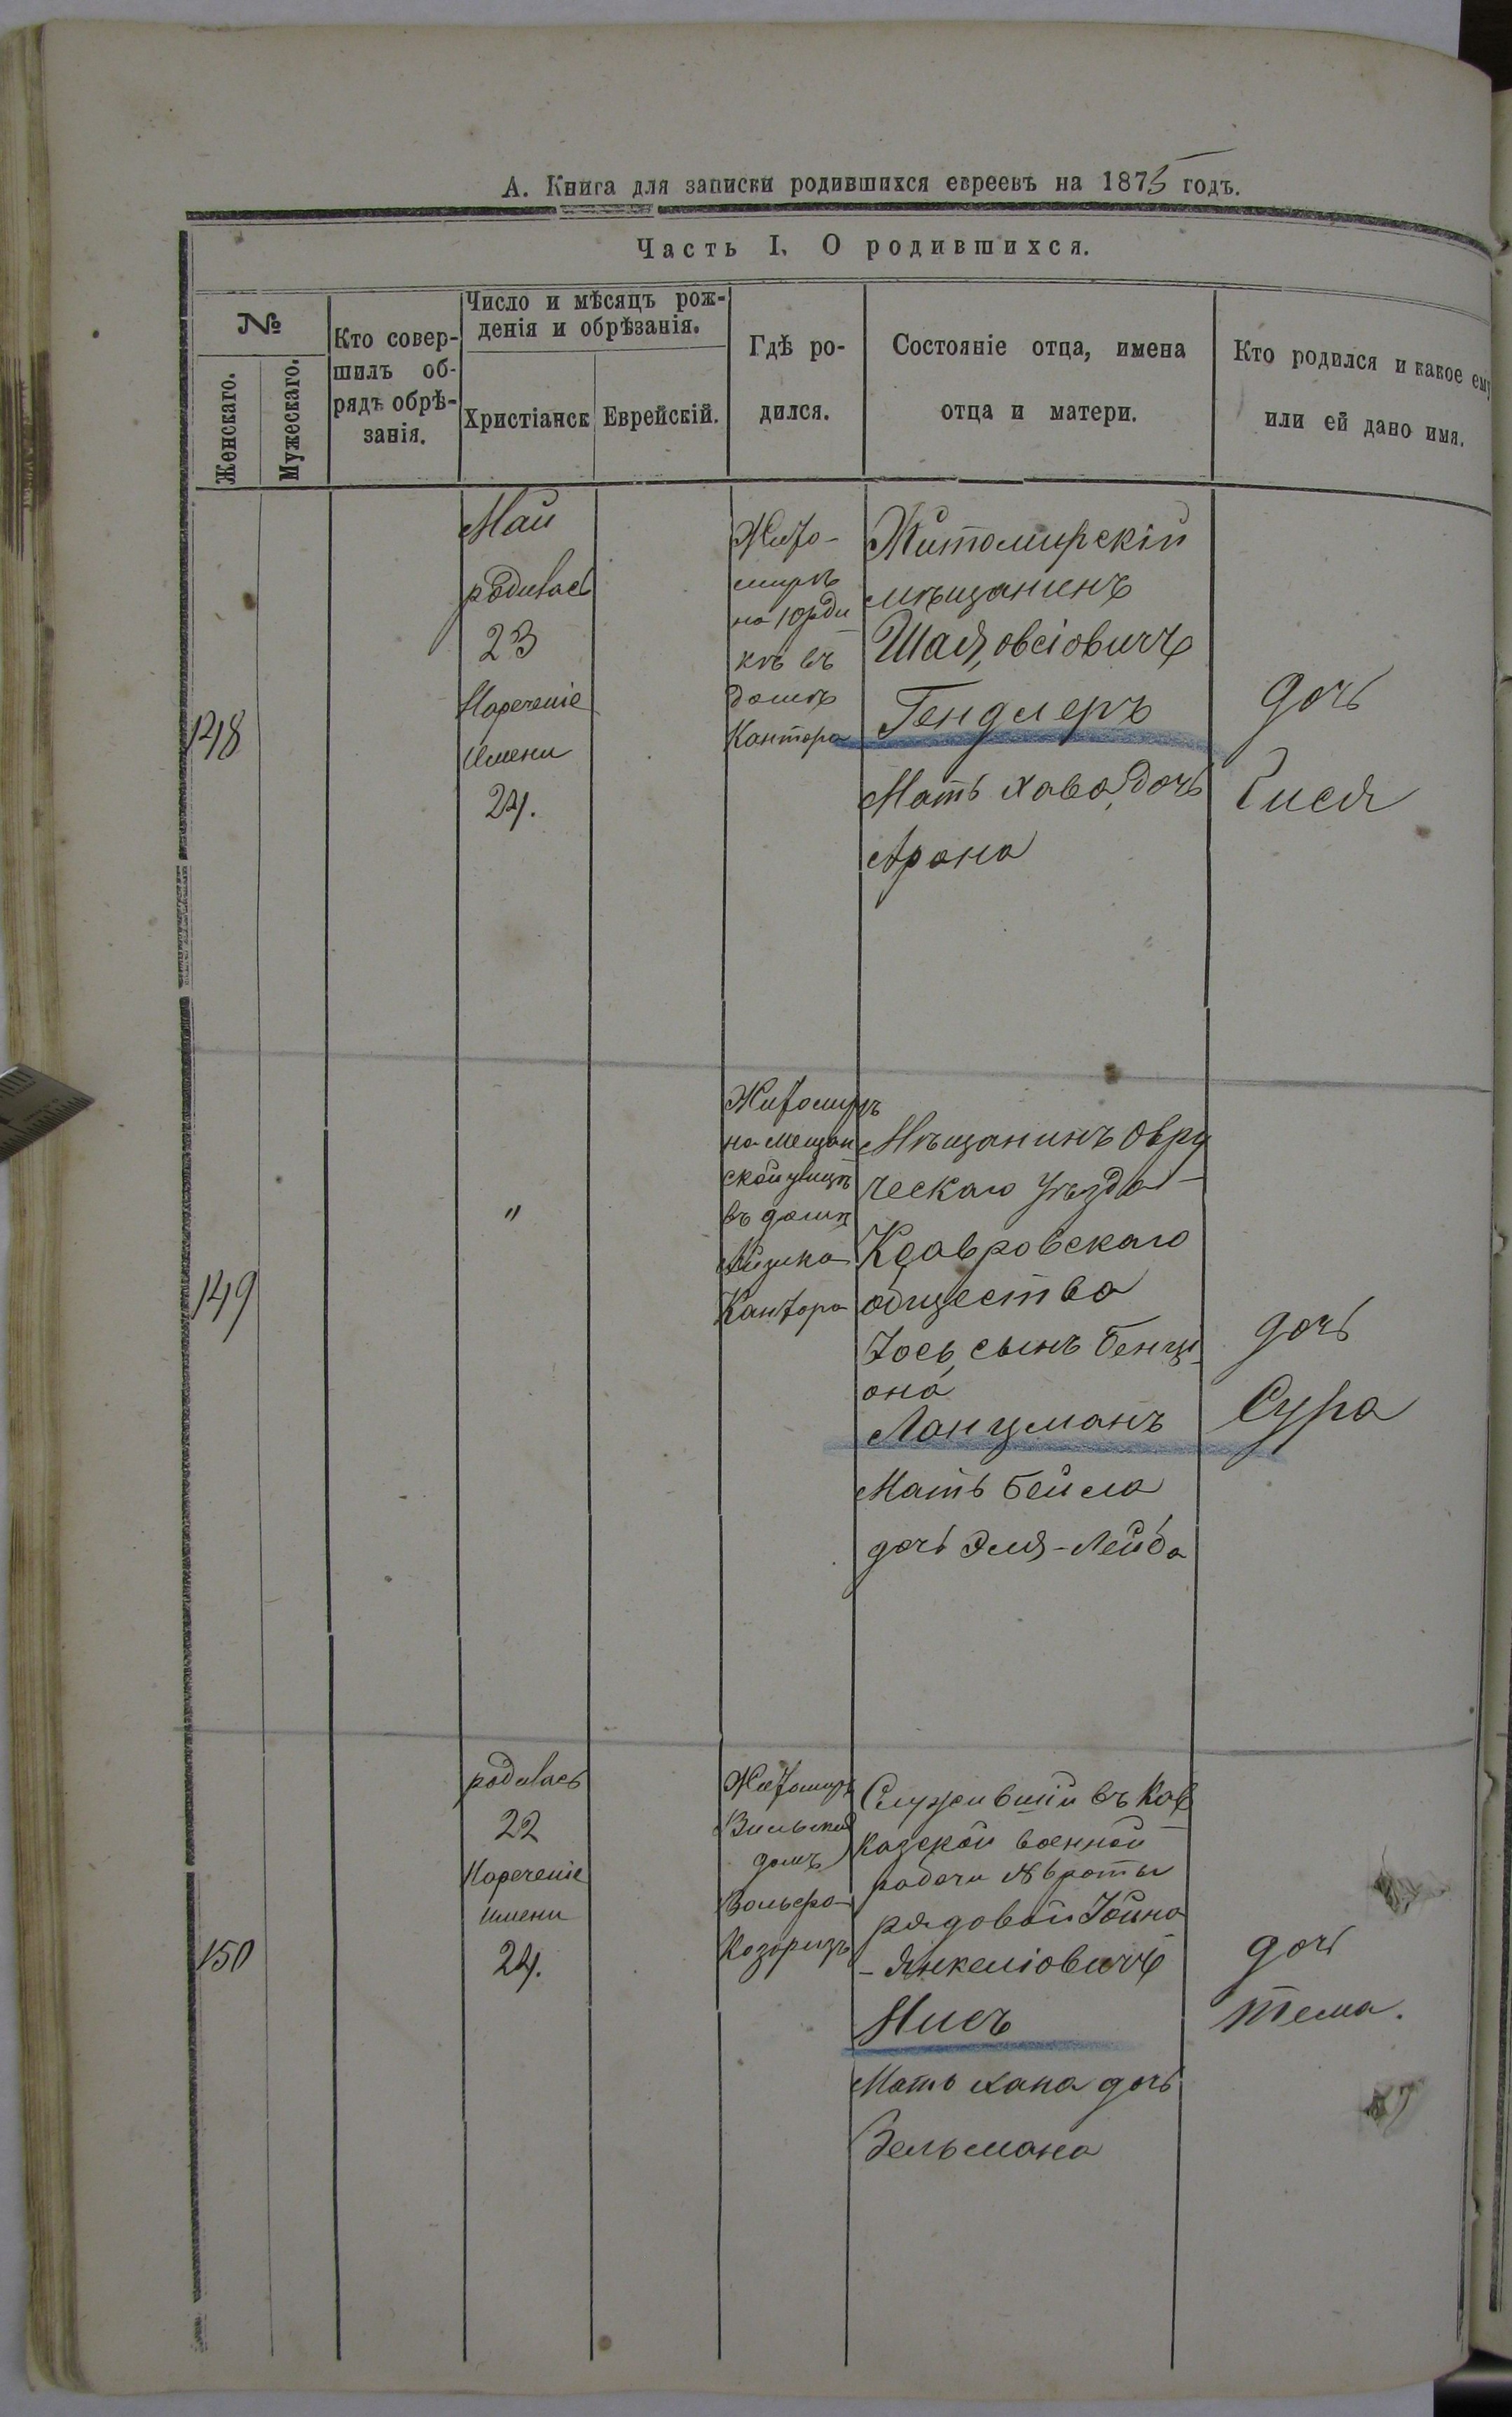 А. Книга для записки родившихся евреевъ на 1875 годъ.
Часть I. О родившихся.
№
Женскаго.
Мужескаго.
Кто совер-
шилъ об-
рядъ обрѣ-
занія.
Число и мѣсяцъ рож-
денія и обрѣзанія.
Христіанск
Еврейскій.
Гдѣ ро-
дился.
Состояніе отца, имена
отца и матери.
Кто родился и какое ему
или ей дано имя.
148
Май
родилась
23
Нареченіе
имени
24.
Жито-
мирѣ
на Юрди
кѣ въ
домѣ
Кантора
Житомирскій
мѣщанинъ
Шая, овсіовичъ
Гендлеръ
Мать Хава, дочь
Арона
дочь
Сися
149
"
Житомиръ
на мещан
ской улицѣ
въ домѣ
Айзика
Кантора
Мѣщанинъ Овру
ческаго уѣзда
общества
Іось, сынъ Бенци
она
Ланцманъ
Мать Бейла
дочь Эля-Лейба
дочь
Сура
150
родилась
22
Нареченіе
имени
24.
Житомиръ
домъ
Служившій въ Кав
казской военной
рабочи № роты
рядовой Іойна
-Янкеліовичъ
Нисъ
Мать Хана дочь
Зельмана
дочь
Тема.